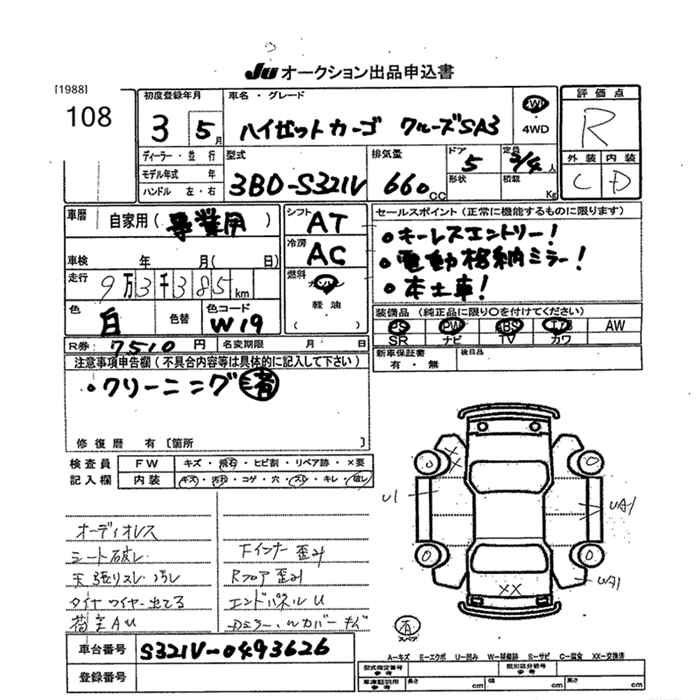 JU オークション出品申込書
[1988]
108
初度登録年月
3 5月
車名・グレード
ハイゼットカーゴ クルーズSA3
2WD
4WD
評価点
R
外装 内装
C D
ディーラー・並行
モデル年式 年
ハンドル 左・右
型式
3BD-S321V
排気量
660 cc
ドア
5
形状
定員
2/4 人
積載
Kg
車歴
自家用(事業用)
車検 年 月( 日)
走行
9万3千385km
色
白
色替
色コード
W19
シフト
AT
冷房
AC
燃料
ガソリン
軽油
( )
セールスポイント(正常に機能するものに限ります)
・キーレスエントリー!
・電動格納ミラー!
・本土車!
装備品(純正品に限り○を付けてください)
PS PW ABS エアB AW
SR ナビ TV カワ
R券: 7510円
名変期限 月 日
新車保証書
有・無
後日品
注意事項申告欄(不具合内容等は具体的に記入して下さい)
・クリーニング済
修復歴 有[箇所 ]
検査員
記入欄
FW キズ・飛石・ヒビ割・リペア跡・×要
内装 キズ・汚れ・コゲ・穴・スレ・キレ・破レ
オーディオレス
シート破レ
天張リスレ汚レ
タイヤワイヤー出てる
荷室AU
Fインナー歪み
Rフロア歪み
エンドパネルU
X X
U1
UA1
UA1
XX
有
スペア
車台番号
S321V-0493626
登録番号
A-キズ E-エクボ U-凹み W-補修跡 S-サビ C-腐食 XX-交換済
型式指定番号
参考
類別区分番号
参考
車庫証明用
参考
長さ cm
幅 cm
高さ cm